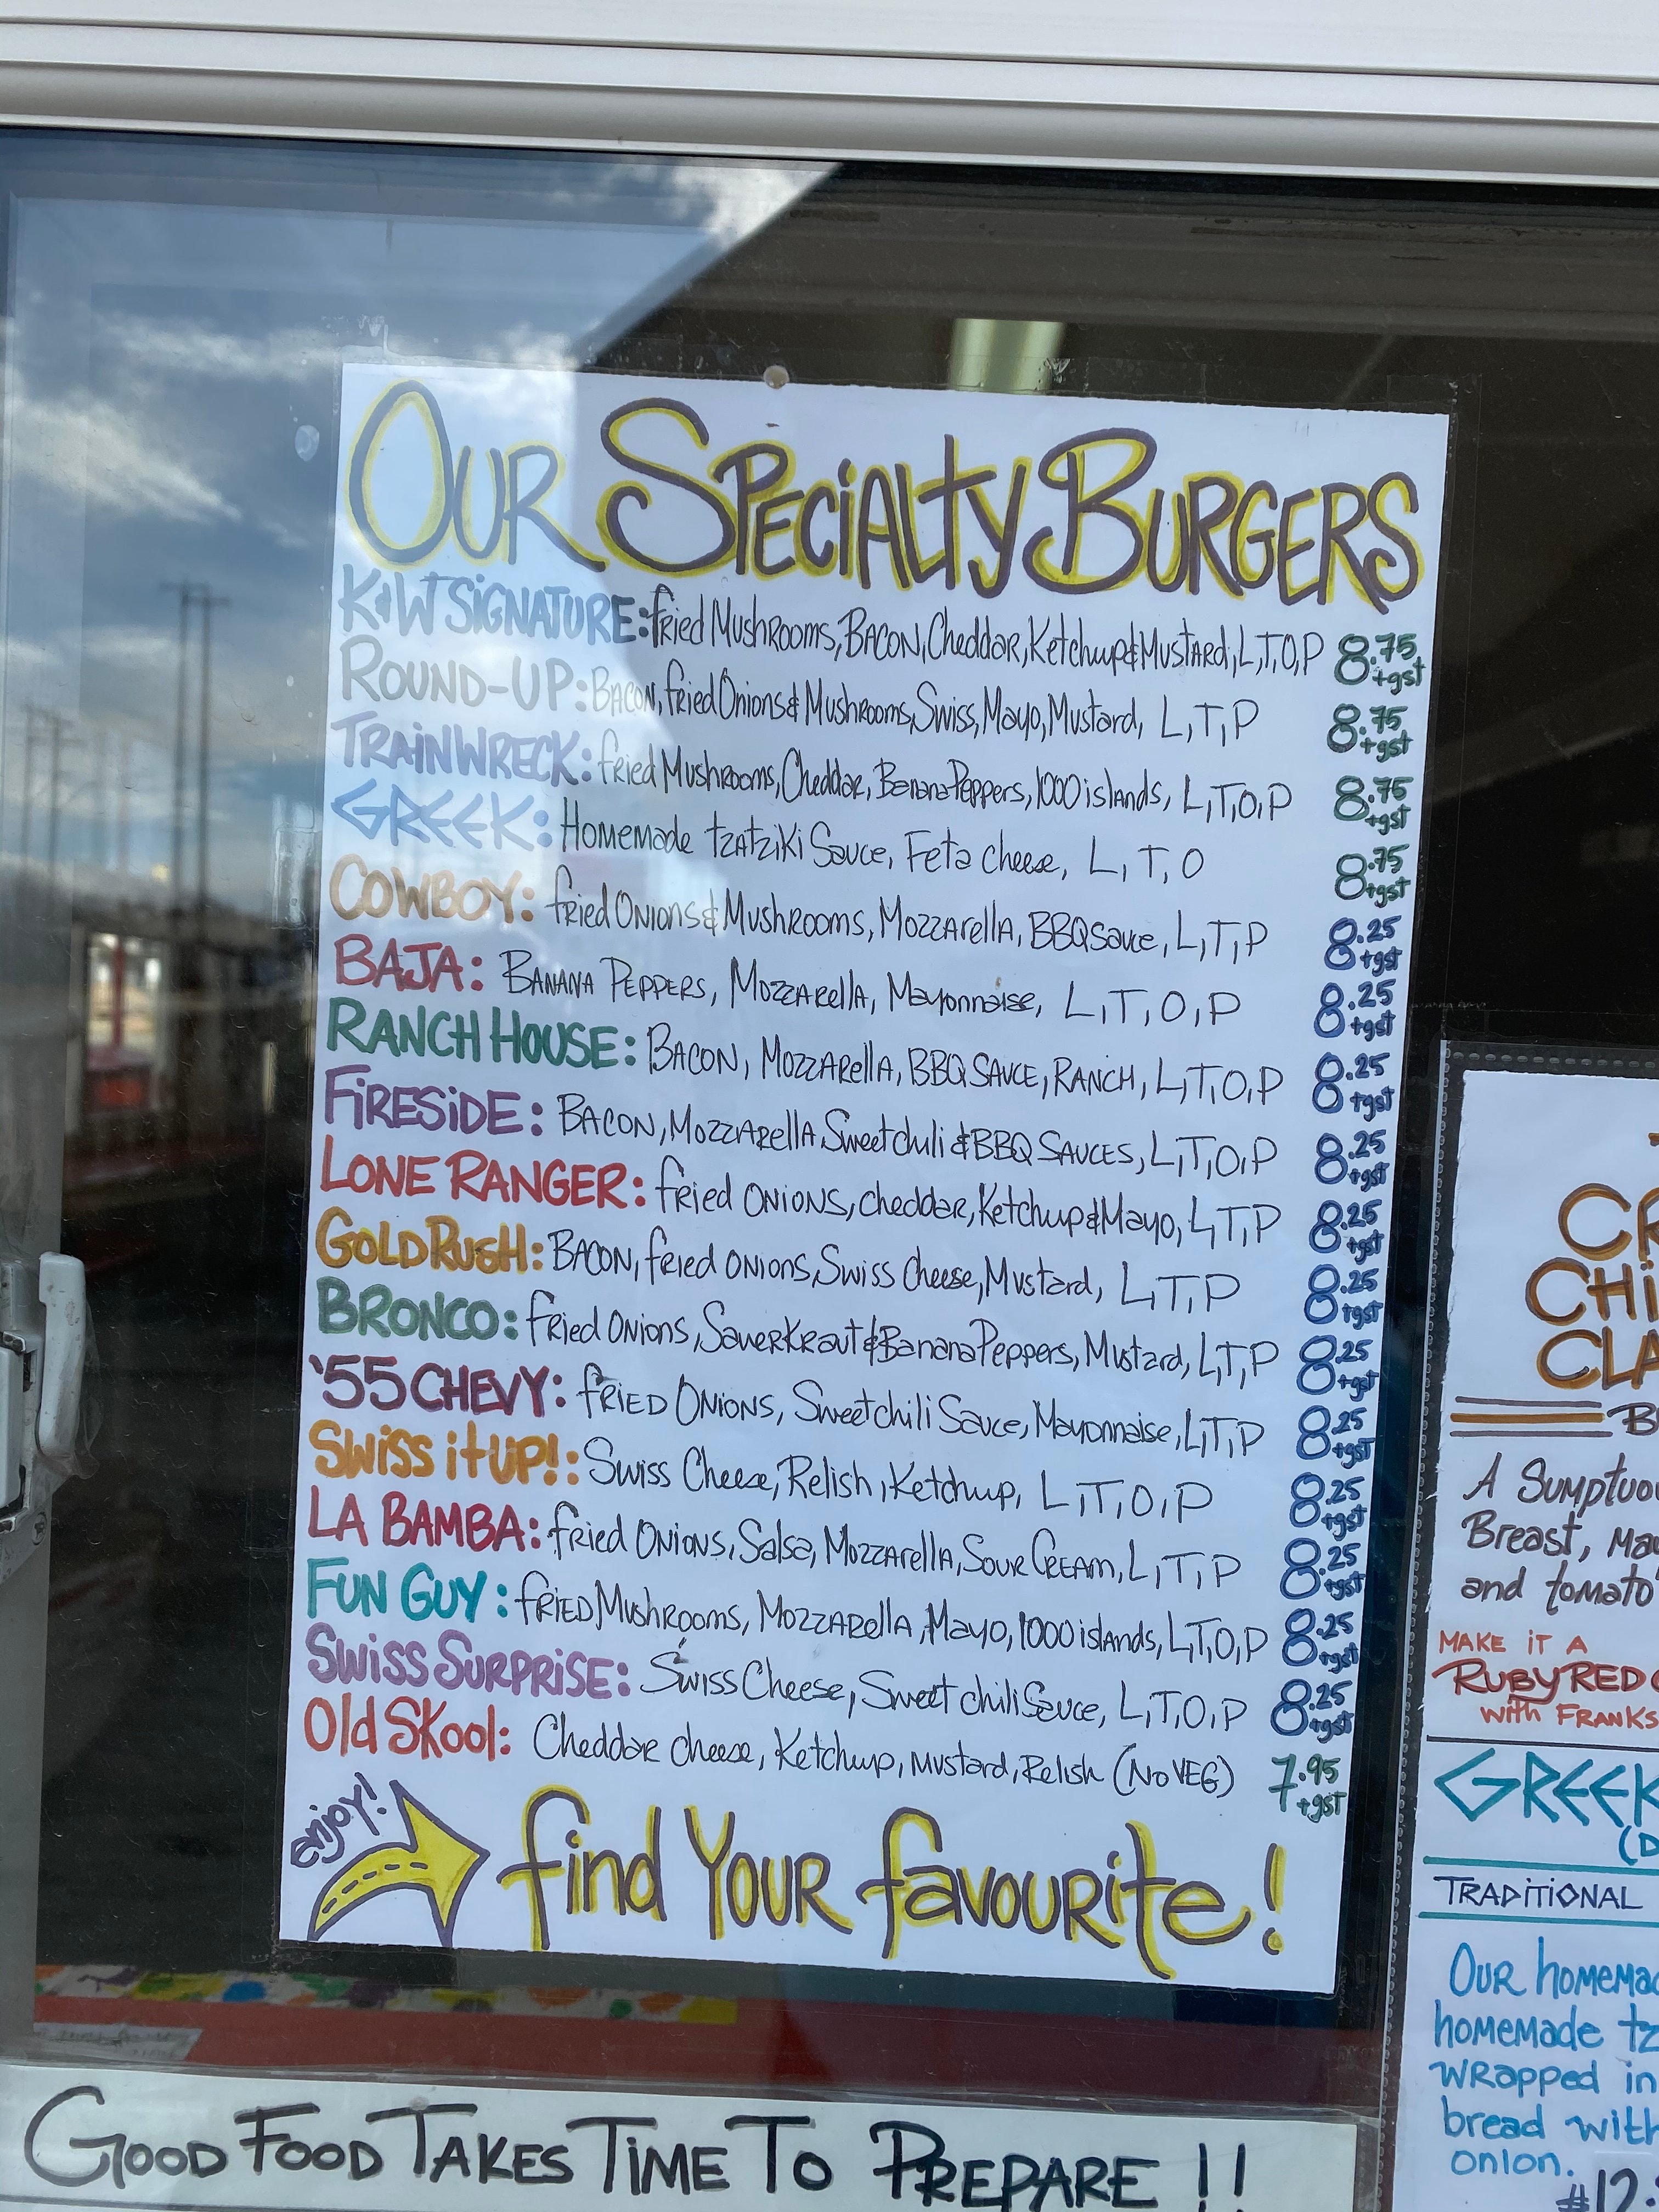 OUR SPECIALTY BURGERS
K&W SIGNATURE: fried Mushrooms, BACON, Cheddar, Ketchup & Mustard, L, T, O, P 8.75 +gst
ROUND-UP: BACON, fried Onions & Mushrooms, Swiss, Mayo, Mustard, L, T, P 8.75 +gst
TRAINWRECK: fried Mushrooms, Cheddar, Banana Peppers, 1000 islands, L, T, O, P 8.75 +gst
GREEK: Homemade tzatziki Sauce, Feta cheese, L, T, O 8.75 +gst
COWBOY: fried Onions & Mushrooms, Mozzarella, BBQ sauce, L, T, P 8.25 +gst
BAJA: BANANA PEPPERS, Mozzarella, Mayonnaise, L, T, O, P 8.25 +gst
RANCH HOUSE: BACON, Mozzarella, BBQ SAUCE, RANCH, L, T, O, P 8.25 +gst
FIRESIDE: BACON, Mozzarella, Sweet chili & BBQ SAUCES, L, T, O, P 8.25 +gst
LONE RANGER: fried ONIONS, cheddar, Ketchup & Mayo, L, T, P 8.25 +gst
GOLD RUSH: BACON, fried ONIONS, Swiss Cheese, Mustard, L, T, P 8.25 +gst
BRONCO: fried Onions, SauerKraut & Banana Peppers, Mustard, L, T, P 8.25 +gst
'55 CHEVY: FRIED ONIONS, Sweet chili Sauce, Mayonnaise, L, T, P 8.25 +gst
SWISS it UP!: Swiss Cheese, Relish, Ketchup, L, T, O, P 8.25 +gst
LA BAMBA: fried Onions, Salsa, Mozzarella, Sour Cream, L, T, P 8.25 +gst
FUN GUY: FRIED Mushrooms, Mozzarella, Mayo, 1000 islands, L, T, O, P 8.25 +gst
SWISS SURPRISE: Swiss Cheese, Sweet chili Sauce, L, T, O, P 8.25 +gst
Old SKool: Cheddar cheese, Ketchup, Mustard, Relish (No VEG) 7.95 +gst
enjoy!
find YOUR favourite!
GOOD FOOD TAKES TIME TO PREPARE!!
A Sumptuo
Breast,
and tomato
MAKE iT A
RUBY RED
with FRANKS
GREEK
TRADITIONAL
OUR homema
homemade tz
wrapped in
bread with
onion.